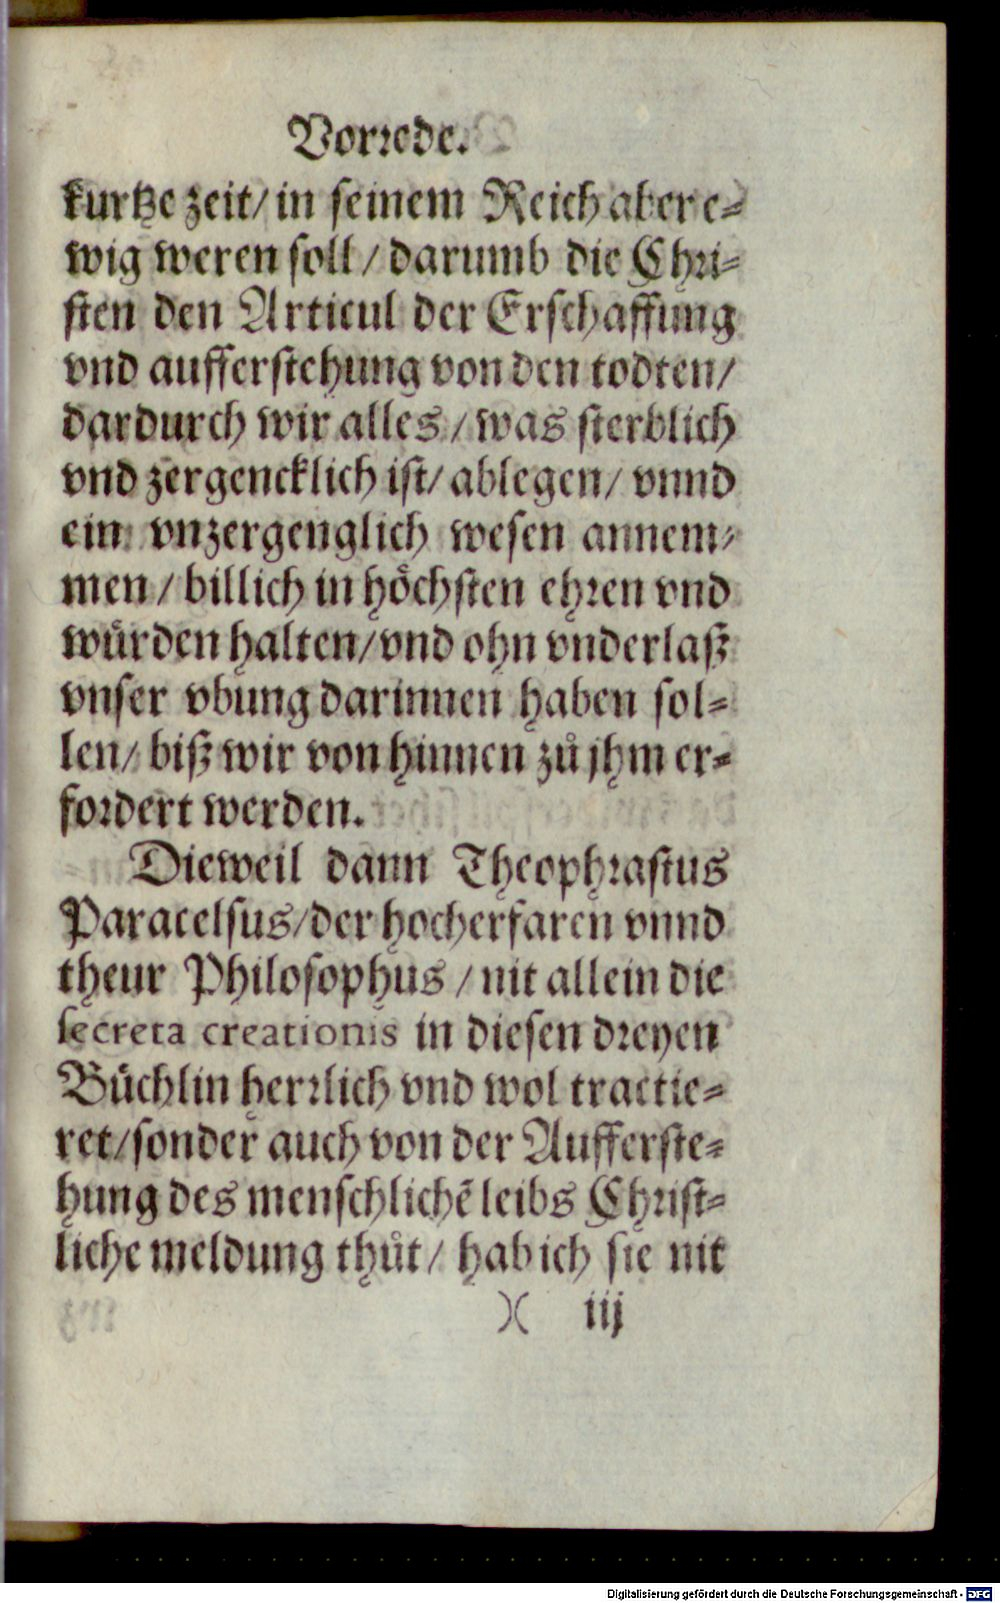 Vorrede.
kurtze zeit/ in seinem Reich aber e⸗
wig weren soll / darumb die Chri⸗
sten den Articul der Erschaffung
vnd aufferstehung von den todten/
dardurch wir alles / was sterblich
vnd zergencklich ist/ ablegen/ vnnd
ein vnzergenglich wesen annem⸗
men / billich in hoͤchsten ehren vnd
wuͤrden halten/ vnd ohn vnderlaß
vnser vbung darinnen haben sol⸗
len/ biß wir von hinnen zů jhm er⸗
fordert werden.
Dieweil dann Theophrastus
Paracelsus/ der hocherfaren vnnd
theur Philosophus / nit allein die
secreta creationis in diesen dreyen
Buͤchlin herrlich vnd wol tractie⸗
ret/ sonder auch von der Aufferste⸗
hung des menschlichẽ leibs Christ⸗
liche meldung thůt/ hab ich sie nit
)( iij
Digitalisierung gefördert durch die Deutsche Forschungsgemeinschaft - DFG